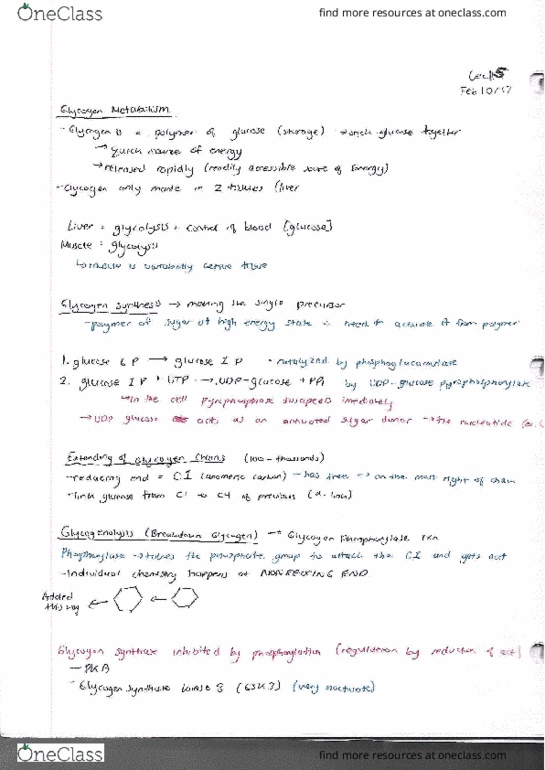 OneClass
find more resources at oneclass.com
Lec 5
Feb 10/17
Glycogen Metabolism
- Glycogen is a polymer of glucose (storage) → glucose together
→ quick source of energy
→ released rapidly (readily accessible source of energy)
- Glycogen only made in 2 tissues (liver
Liver = glycolysis + control of blood [glucose]
Muscle = glycolysis
↳ muscle is metabolically active tissue
Glycogen Synthesis → making the single precursor
- polymer of sugar at high energy state ∴ need to activate it form polymer
1. glucose 6 P → glucose 1 P • catalyzed by phosphoglucomutase
2. glucose 1 P + UTP → UDP-glucose + PPi by UDP-glucose pyrophosphorylase
↳ in the cell pyrophosphate immediately
→ UDP glucose acts as an activated sugar donor → the nucleotide
Extending of Glycogen Chains (100 - thousands)
- reducing end = C1 (anomeric carbon) - has free → on the most right of chain
- link glucose from C1 to C4 of previous (α-link)
Glycogenolysis (Breakdown Glycogen) → Glycogen Phosphorylase rxn
Phosphorylase → takes the phosphate group to attack the C1 and gets out
- Individual chemistry happens at NONREDUCING END
Added this way
Glycogen synthase inhibited by phosphorylation (regulation by reduction of act)
- PKA
- Glycogen synthase kinase 3 (GSK3) (very
OneClass
find more resources at oneclass.com